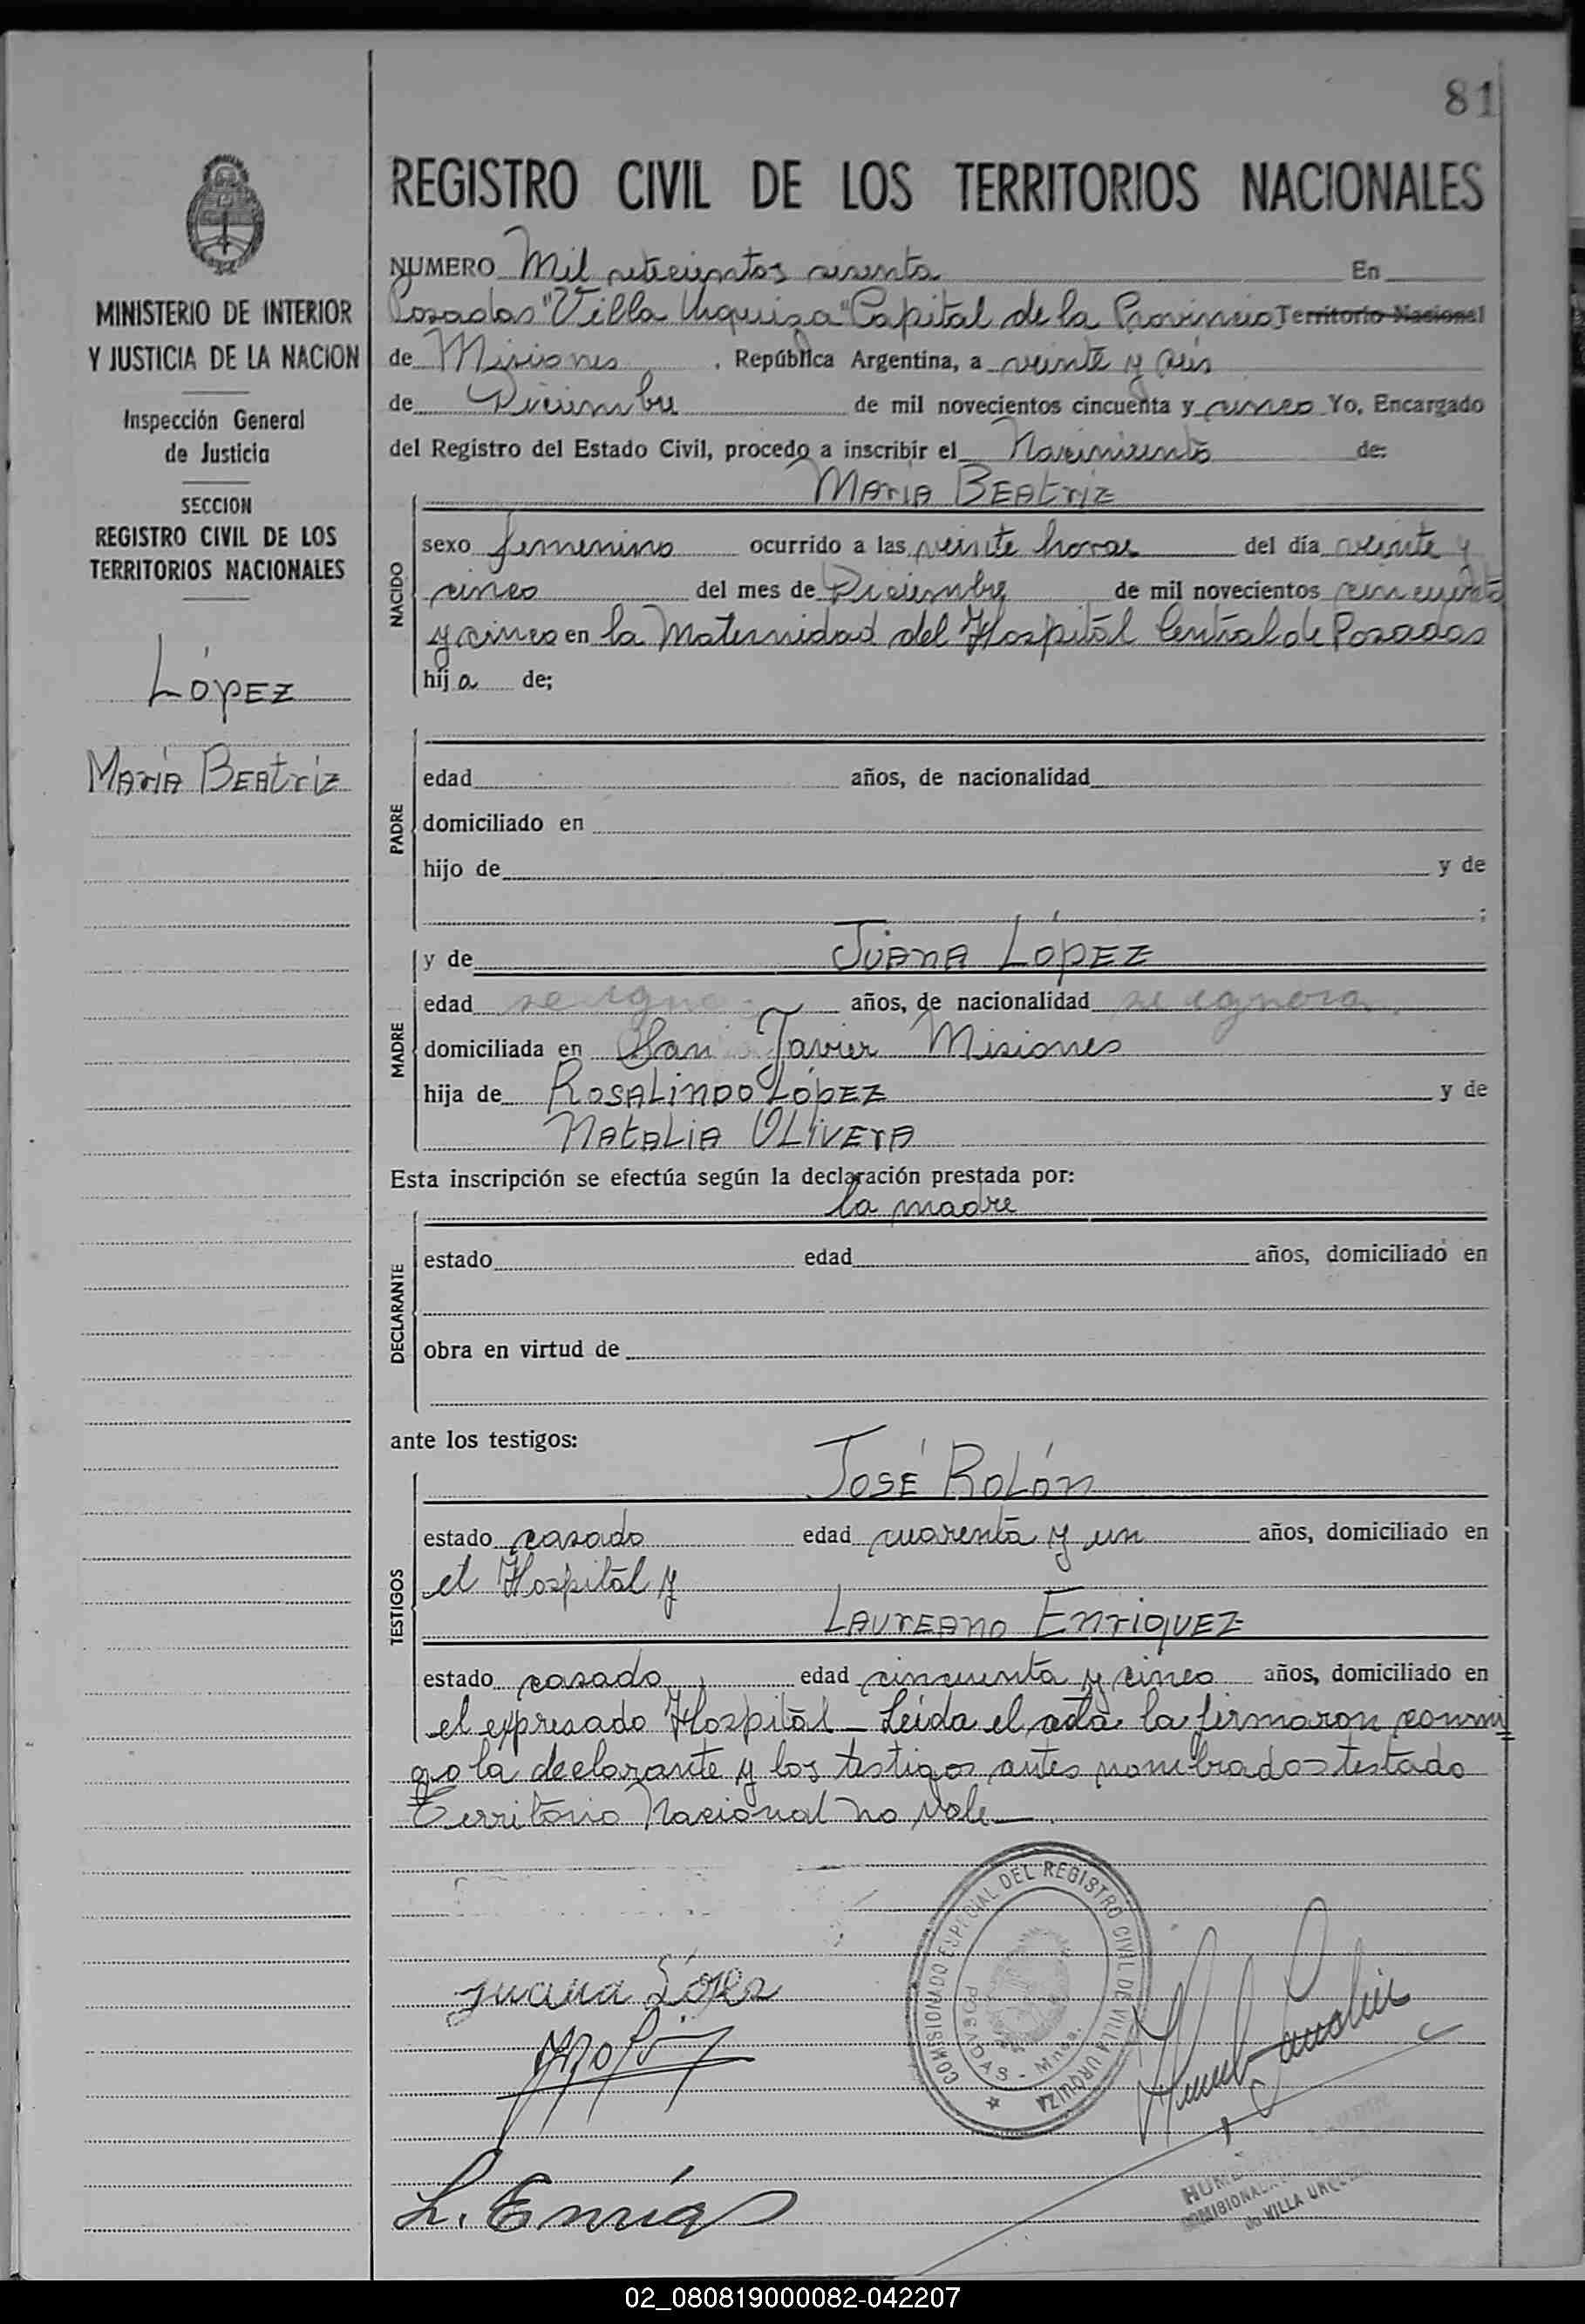 81
REGISTRO CIVIL DE LOS TERRITORIOS NACIONALES
MINISTERIO DE INTERIOR
Y JUSTICIA DE LA NACION
Inspección General
de Justicia
SECCION
REGISTRO CIVIL DE LOS
TERRITORIOS NACIONALES
López
María Beatriz
NUMERO Mil setecientos sesenta En
Posadas "Villa Urquiza" Capital de la Provincia Territorio Nacional
de Misiones, República Argentina, a veinte y seis
de Diciembre de mil novecientos cincuenta y cinco Yo, Encargado
del Registro del Estado Civil, procedo a inscribir el Nacimiento de:
María Beatriz
NACIDO
sexo femenino ocurrido a las veinte horas del día veinte y
cinco del mes de Diciembre de mil novecientos cincuenta
y cinco en la Maternidad del Hospital Central de Posadas
hija de;
PADRE
edad años, de nacionalidad
domiciliado en
hijo de y de
;
y de Juana López
MADRE
edad se ignora años, de nacionalidad se ignora
domiciliada en San Javier Misiones
hija de Rosalindo López y de
Natalia Olivera
Esta inscripción se efectúa según la declaración prestada por:
la madre
DECLARANTE
estado edad años, domiciliado en
obra en virtud de
ante los testigos:
José Rolón
TESTIGOS
estado casado edad cuarenta y un años, domiciliado en
el Hospital y
Laureano Enriquez
estado casado edad cincuenta y cinco años, domiciliado en
el expresado Hospital - Leída el acta la firmaron conmi
go la declarante y los testigos antes nombrados testado
Territorio Nacional no vale
COMISIONADO ESPECIAL DEL REGISTRO CIVIL DE VILLA URQUIZA
POSADAS - Mnes.
Juana López
L. Enriq
de VILLA
02_080819000082-042207